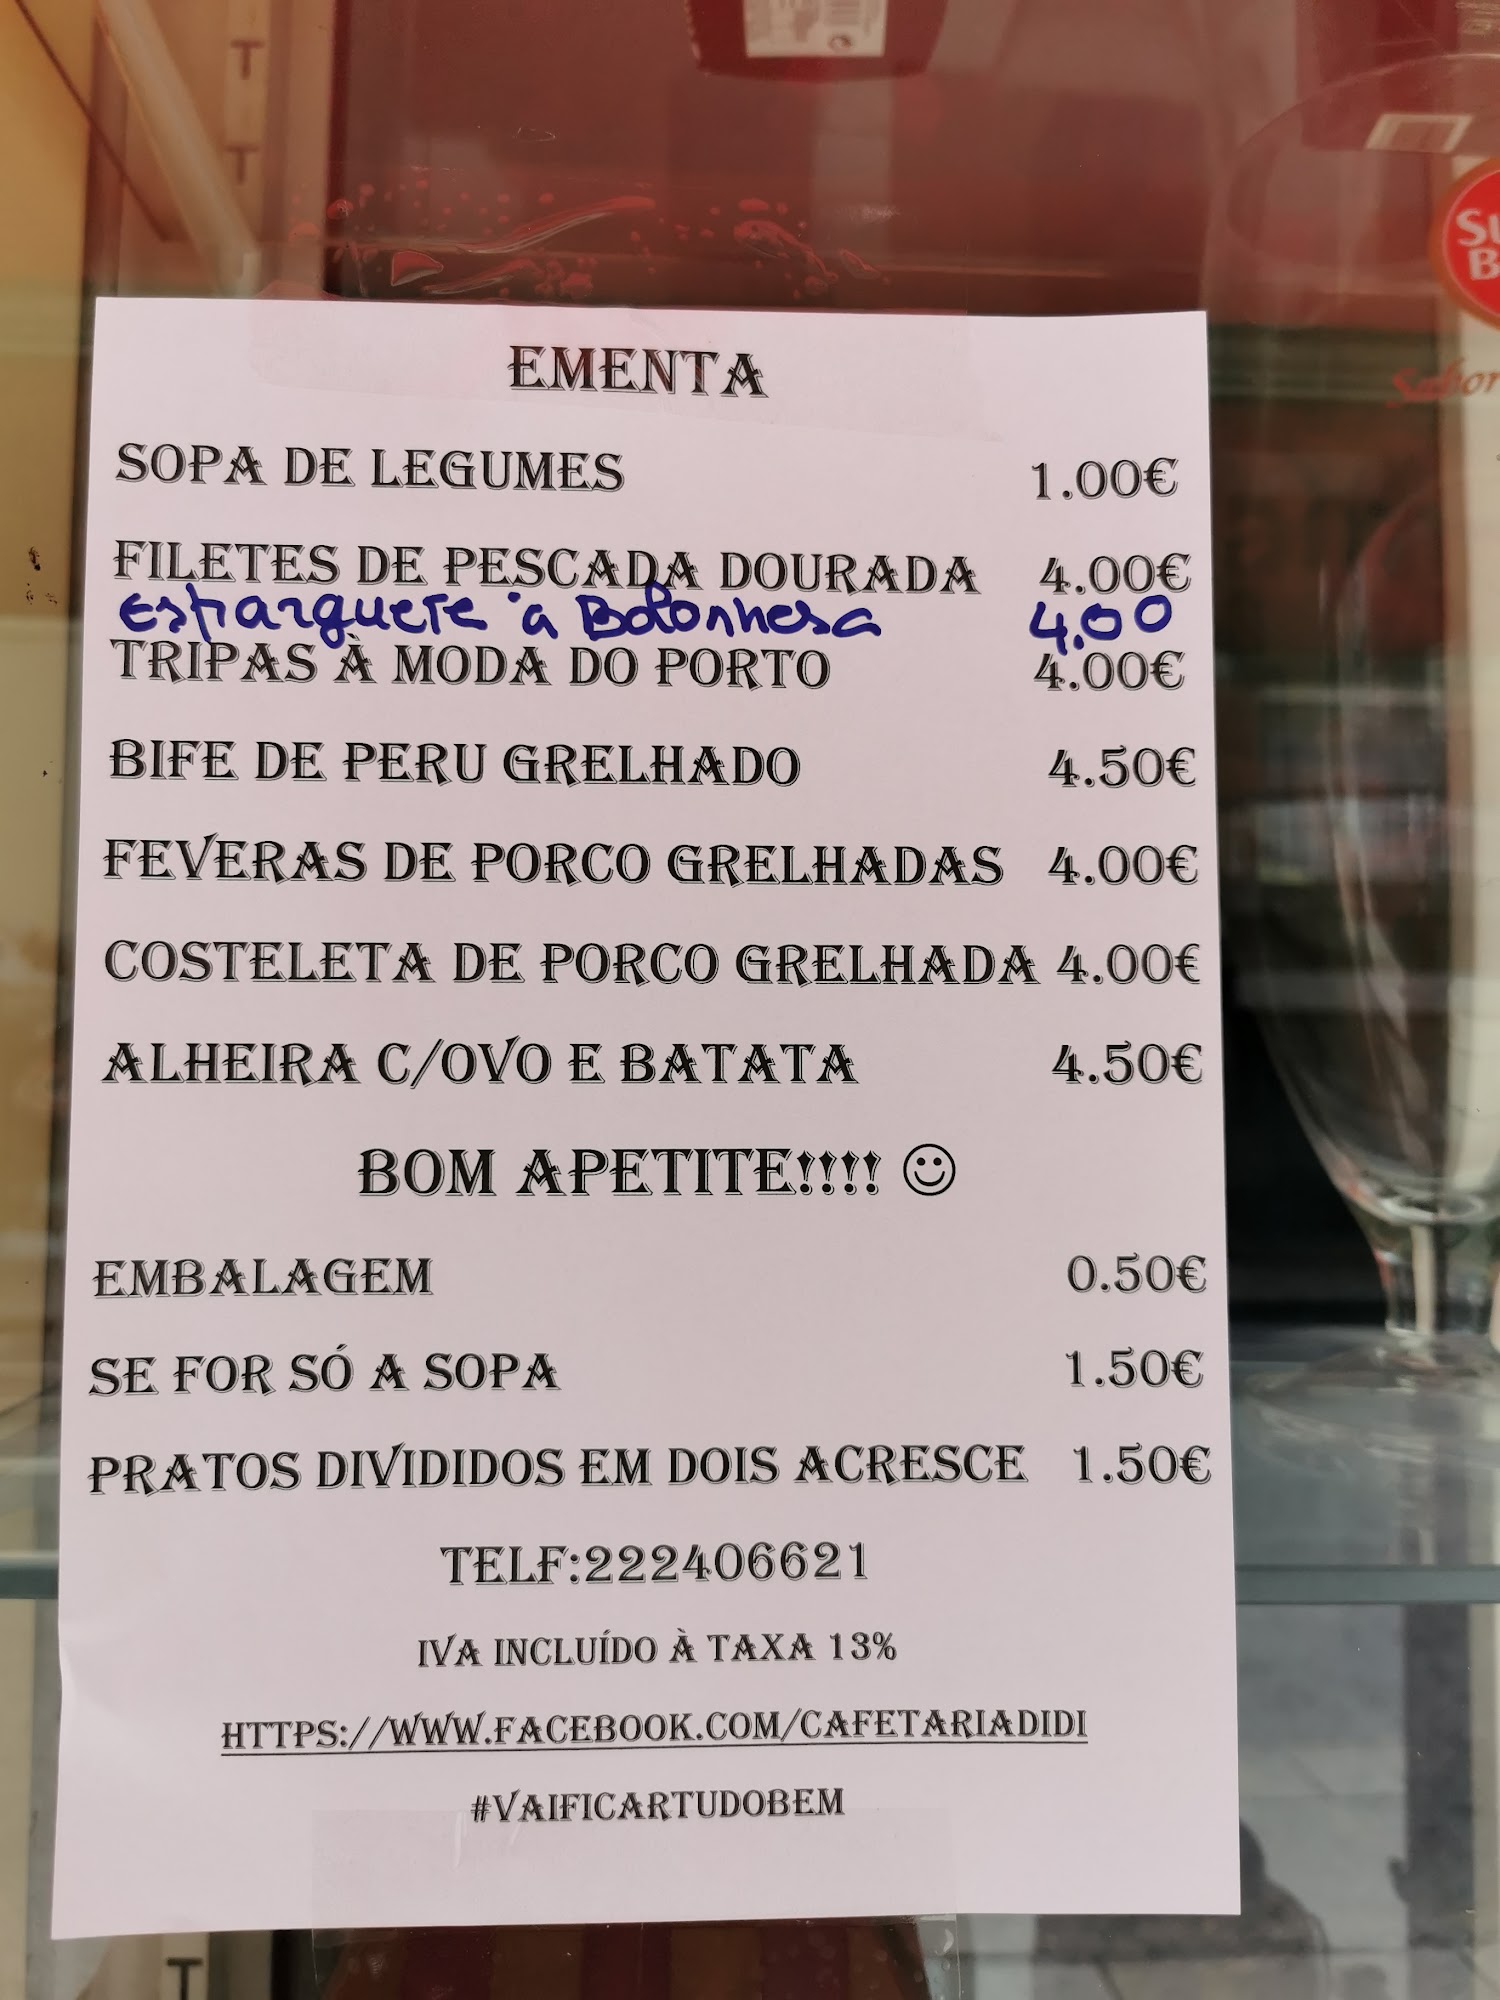 EMENTA
SOPA DE LEGUMES 1.00€
FILETES DE PESCADA DOURADA 4.00€
Esparguete à Bolonhesa 4.00
TRIPAS À MODA DO PORTO 4.00€
BIFE DE PERU GRELHADO 4.50€
FEVERAS DE PORCO GRELHADAS 4.00€
COSTELETA DE PORCO GRELHADA 4.00€
ALHEIRA C/OVO E BATATA 4.50€
BOM APETITE!!!! ☺
EMBALAGEM 0.50€
SE FOR SÓ A SOPA 1.50€
PRATOS DIVIDIDOS EM DOIS ACRESCE 1.50€
TELF:222406621
IVA INCLUÍDO À TAXA 13%
HTTPS://WWW.FACEBOOK.COM/CAFETARIADIDI
#VAIFICARTUDOBEM